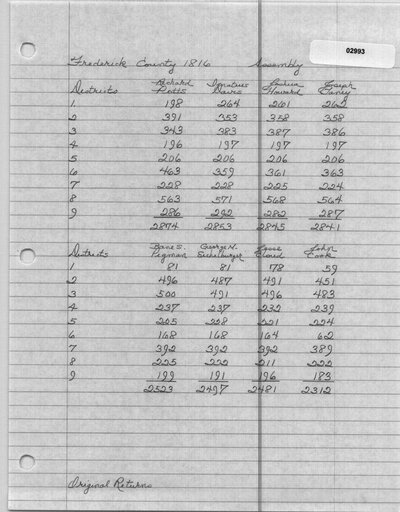 02993
Frederick County 1816 Assembly
Districts Richard Potts Ignatius Davis Joshua Howard Joseph
1. 198 264 261 262
2 391 353 358 358
3 343 383 387 386
4 196 197 197 197
5 206 206 206 206
6 463 359 361 363
7 228 228 225 224
8 563 571 568 564
9 286 292 282 287
2874 2853 2845 2841
Districts George W. Jesse Cloud John Cook
1 81 81 78 59
2 496 487 491 451
3 500 491 496 483
4 237 237 232 239
5 205 228 221 224
6 168 168 164 62
7 392 392 392 389
8 225 222 211 222
9 199 191 196 183
2523 2497 2481 2312
Original Returns